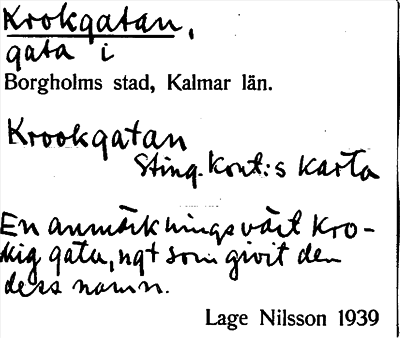 Krokgatan,
gata i
Borgholms stad, Kalmar län.
Krookgatan
Sting. kont:s karta
En anmärkningsvärt kro-
kig gata, ngt som givit den
dess namn.
Lage Nilsson 1939